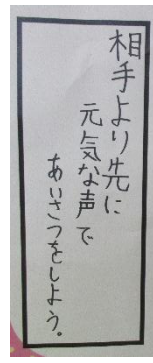 相手より先に
元気な声で
あいさつをしよう。